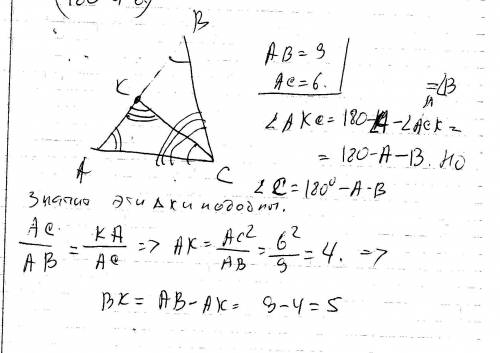 B
K
A
C
AB = 9
AC = 6.
= ∠B
∠AKC = 180 - ∠A - ∠ACK =
= 180 - A - B. Но
∠C = 180° - A - B
Значит эти Δки подобны.
AC/AB = KA/AC => AK = AC²/AB = 6²/9 = 4. =>
BK = AB - AK = 9 - 4 = 5